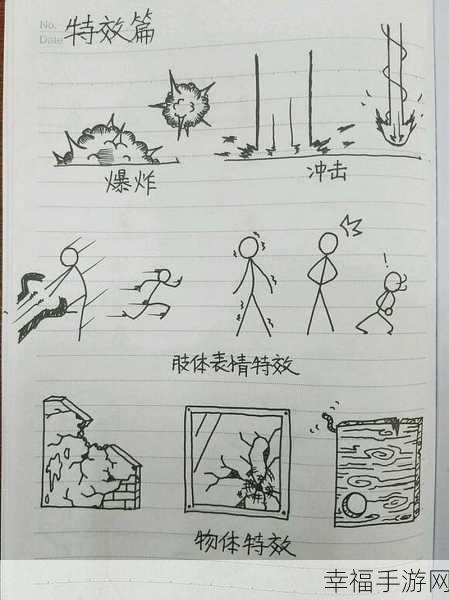 No.
Date
特效篇
爆炸
冲击
!
肢体表情特效
物体特效
幸福手游网